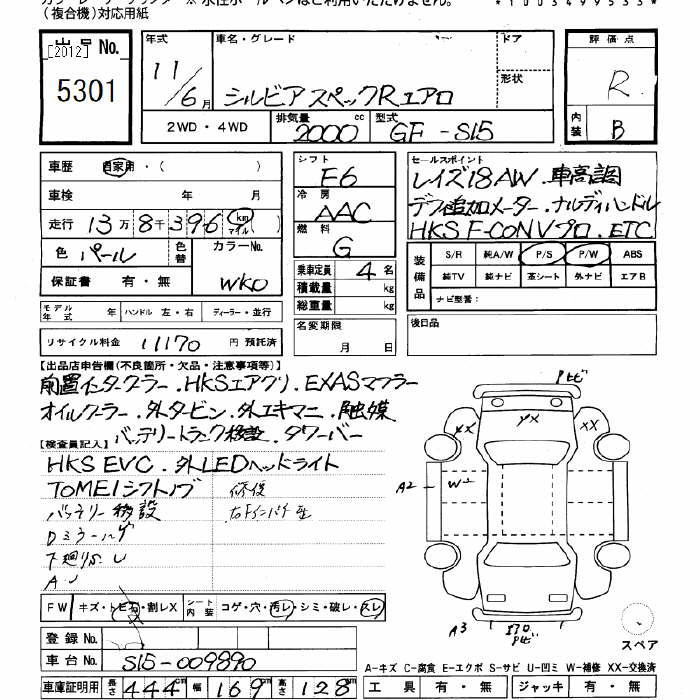 (複合機)対応用紙
出品 No.
[2012]
5301
年式 車名・グレード ドア
11/6月 シルビア スペックR エアロ
形状
2WD・4WD 排気量 2000 cc 型式 GF-S15
評価点
R
内装 B
車歴 自家用・( )
車検 年 月
走行 13万8千396 km マイル ( )
色 パール 色替 カラーNo. WK0
保証書 有・無
シフト F6
冷房 AAC
燃料 G
乗車定員 4名
積載量 kg
総重量 kg
セールスポイント
レイズ18AW.車高調
デフ追加メーター.ナルディハンドル
HKS F-CON Vプロ.ETC
装備品 S/R 純A/W P/S P/W ABS
純TV 純ナビ 革シート 外ナビ エアB
ナビ型番:
モデル年式 年 ハンドル 左・右 ディーラー・並行
名変期限 月 日
後日品
リサイクル料金 11170 円 預託済
【出品店申告欄(不良箇所・欠品・注意事項等)】
前置インタークーラー.HKSエアクリ.EXASマフラー
オイルクーラー.外タービン.外エキマニ.触媒
バッテリートランク移設.タワーバー
【検査員記入】
HKS EVC.外LEDヘッドライト
TOMEIシフトノブ 修復
バッテリー移設
下廻りS.U
A.U
FW キズ・トビ石・割レX シート内装 コゲ・穴・汚レ・シミ・破レ・スレ
登録 No.
車台 No. S15-009890
車庫証明用 長さ 444cm 幅 169cm 高さ 128cm
XX
A2
W2
A3
スペア
A-キズ C-腐食 E-エクボ S-サビ U-凹ミ W-補修 XX-交換済
工具 有・無 ジャッキ 有・無